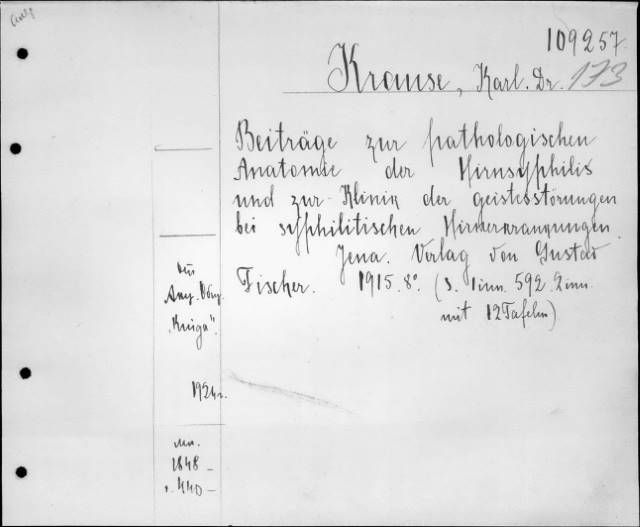 109257.
Krause, Karl. Dr. 173
Beiträge zur pathologischen
Anatomie der Hirnsyphilis
und zur Klinik der geistesstörungen
bei syphilitischen Hirnerkrankungen.
Jena. Verlag von Gustav
Fischer. 1915. 8°. (S. 1inn. 592. 2inn.
mit 12 Tafeln)
"Книга".
1924г.
1848 –
440 –